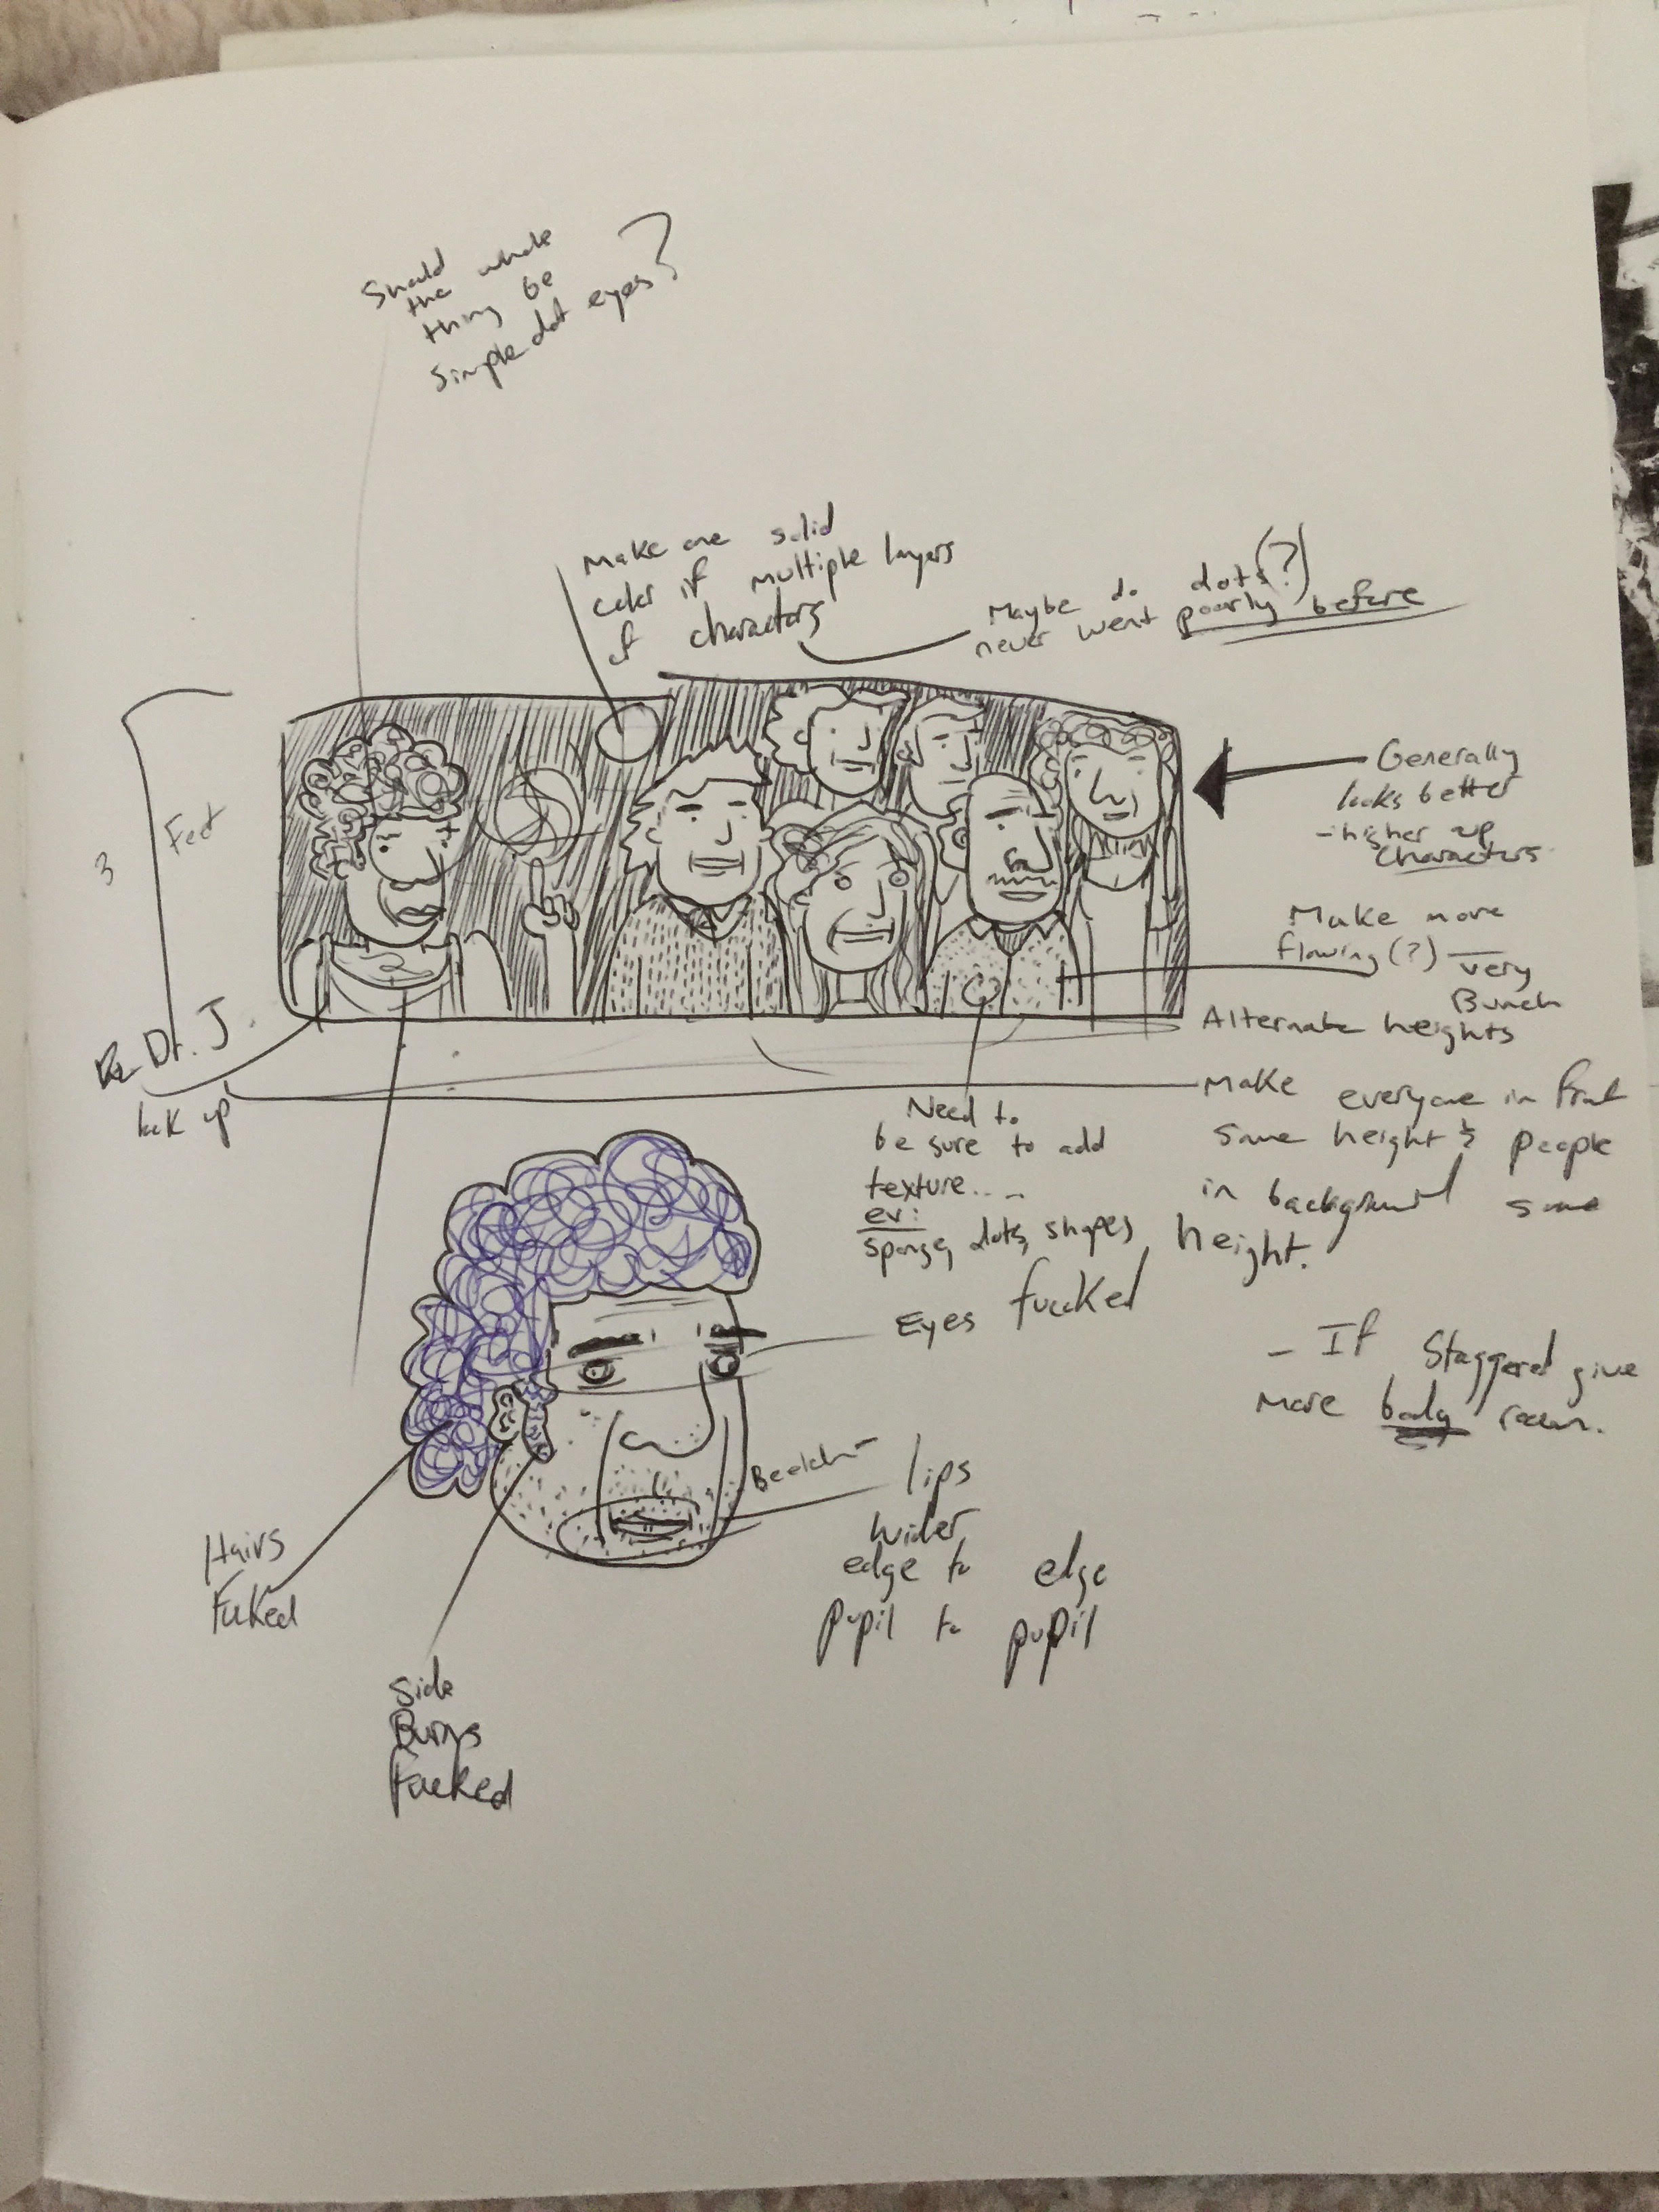 Should
the whole
thing be
simple dot eyes?
Make one solid
color if multiple layers
of characters
Maybe do dots(?)
never went poorly before
3
Feet
Generally
looks better
- higher up
characters
Make more
flowing(?) very
Bunch
Alternate heights
Dr. J.
look up
Make everyone in front
same height & people
in background same
height.
Need to
be sure to add
texture...
ex:
sponge, dots, shapes
Eyes fucked
- If staggered give
more body room.
lips
wider
edge to edge
pupil to pupil
Hairs
Fuked
Side
Burns
Fucked